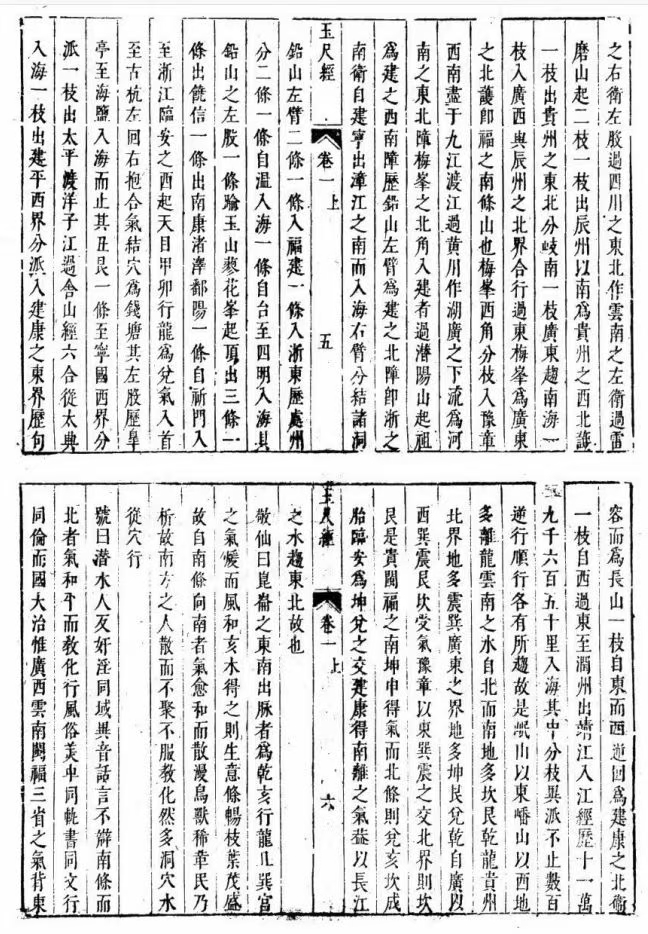 之右衛左股過四川之東北作雲南之左衛過雷
磨山起二枝一枝出辰州以南為貴州之西北護
一枝出貴州之東北分岐南一枝廣東趨南海一
枝入廣西與辰州之北界合行過東梅峯為廣東
之北護卽福之南條山也梅峯西角分枝入豫章
西南盡于九江渡江過黄川作湖廣之下流為河
南之東北障梅峯之北角入建者過潛陽山起祖
為建之西南障歷鉛山左臂為建之北障卽浙之
南衛自建寧出漳江之南而入海右臂分結諸洞
玉尺經 卷一上 五
鉛山左臂二條一條入福建一條入浙東歷處州
分二條一條自温入海一條自台至四明入海其
鉛山之左股一條踰玉山蓼花峯起頂出三條一
條出饒信一條出南康渚澤鄱陽一條自祈門入
至浙江臨安之西起天目甲卯行龍為兌氣入首
至古杭左回右抱合氣結穴為錢塘其左股歷臯
亭至海鹽入海而止其丑艮一條至寧國西界分
派一枝出太平渡洋子江過含山經六合從太典
入海一枝出建平西界分派入建康之東界歷句
容而為長山一枝自東而西逆回為建康之北衛
一枝自西過東至潤州出靖江入江經歷十一萬
九千六百五十里入海其中分枝異派不止數百
逆行順行各有所趨故是岷山以東嶓山以西地
多離龍雲南之水自北而南地多坎艮乾龍貴州
北界地多震巽廣東之界地多坤艮兌乾自廣以
西巽震艮坎受氣豫章以東巽震之交北界則坎
艮是貴閩福之南坤申得氣而北條則兌亥坎成
胎臨安為坤兌之交建康得南離之氣葢以長江
玉尺經 卷一上 六
之水趨東北故也
敬仙曰崑崙之東南出脉者為乾亥行龍爪巽宮
之氣煖而風和亥木得之則生意條暢枝葉茂盛
故自南條向南者氣愈和而散漫鳥獸稀韋民乃
析故南方之人散而不聚不服教化然多洞穴水
從穴行
號曰潛水人叐奸淫同域異音語言不辯南條而
北者氣和平而教化行風俗美車同軌書同文行
同倫而國大治惟廣西雲南閩福三省之氣背東